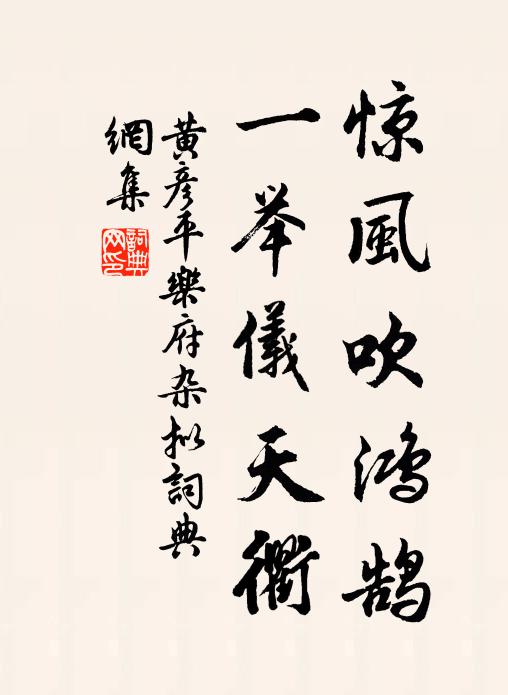 惊風吹鸿鹄
一举儀天衢
黄彦平樂府杂拟詞典
網集
詞典
网印